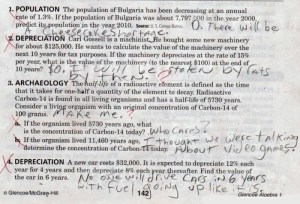 1. POPULATION The population of Bulgaria has been decreasing at an annual
rate of 1.3%. If the population of Bulgaria was about 7,797,000 in the year 2000,
predict its population in the year 2010. 0. There will be
cheesecake shortage.
2. DEPRECIATION Carl Gossell is a machinist. He bought some new machinery
for about $125,000. He wants to calculate the value of the machinery over the
next 10 years for tax purposes. If the machinery depreciates at the rate of 15%
per year, what is the value of the machinery (to the nearest $100) at the end of
10 years? $0. It will be stolen by rats
by then.
3. ARCHAEOLOGY The half-life of a radioactive element is defined as the time
that it takes for one-half a quantity of the element to decay. Radioactive
Carbon-14 is found in all living organisms and has a half-life of 5730 years.
Consider a living organism with an original concentration of Carbon-14 of
100 grams. Make me.
a. If the organism lived 5730 years ago, what
is the concentration of Carbon-14 today? Who cares?
b. If the organism lived 11,460 years ago, I thought we were talking
determine the concentration of Carbon-14 today. About video games!
4. DEPRECIATION A new car costs $32,000. It is expected to depreciate 12% each
year for 4 years and then depreciate 8% each year thereafter. Find the value of
the car in 6 years. No one will drive cars in 6 years
with fuel going up like it is.
© Glencoe/McGraw-Hill 142 Glencoe Algebra 1